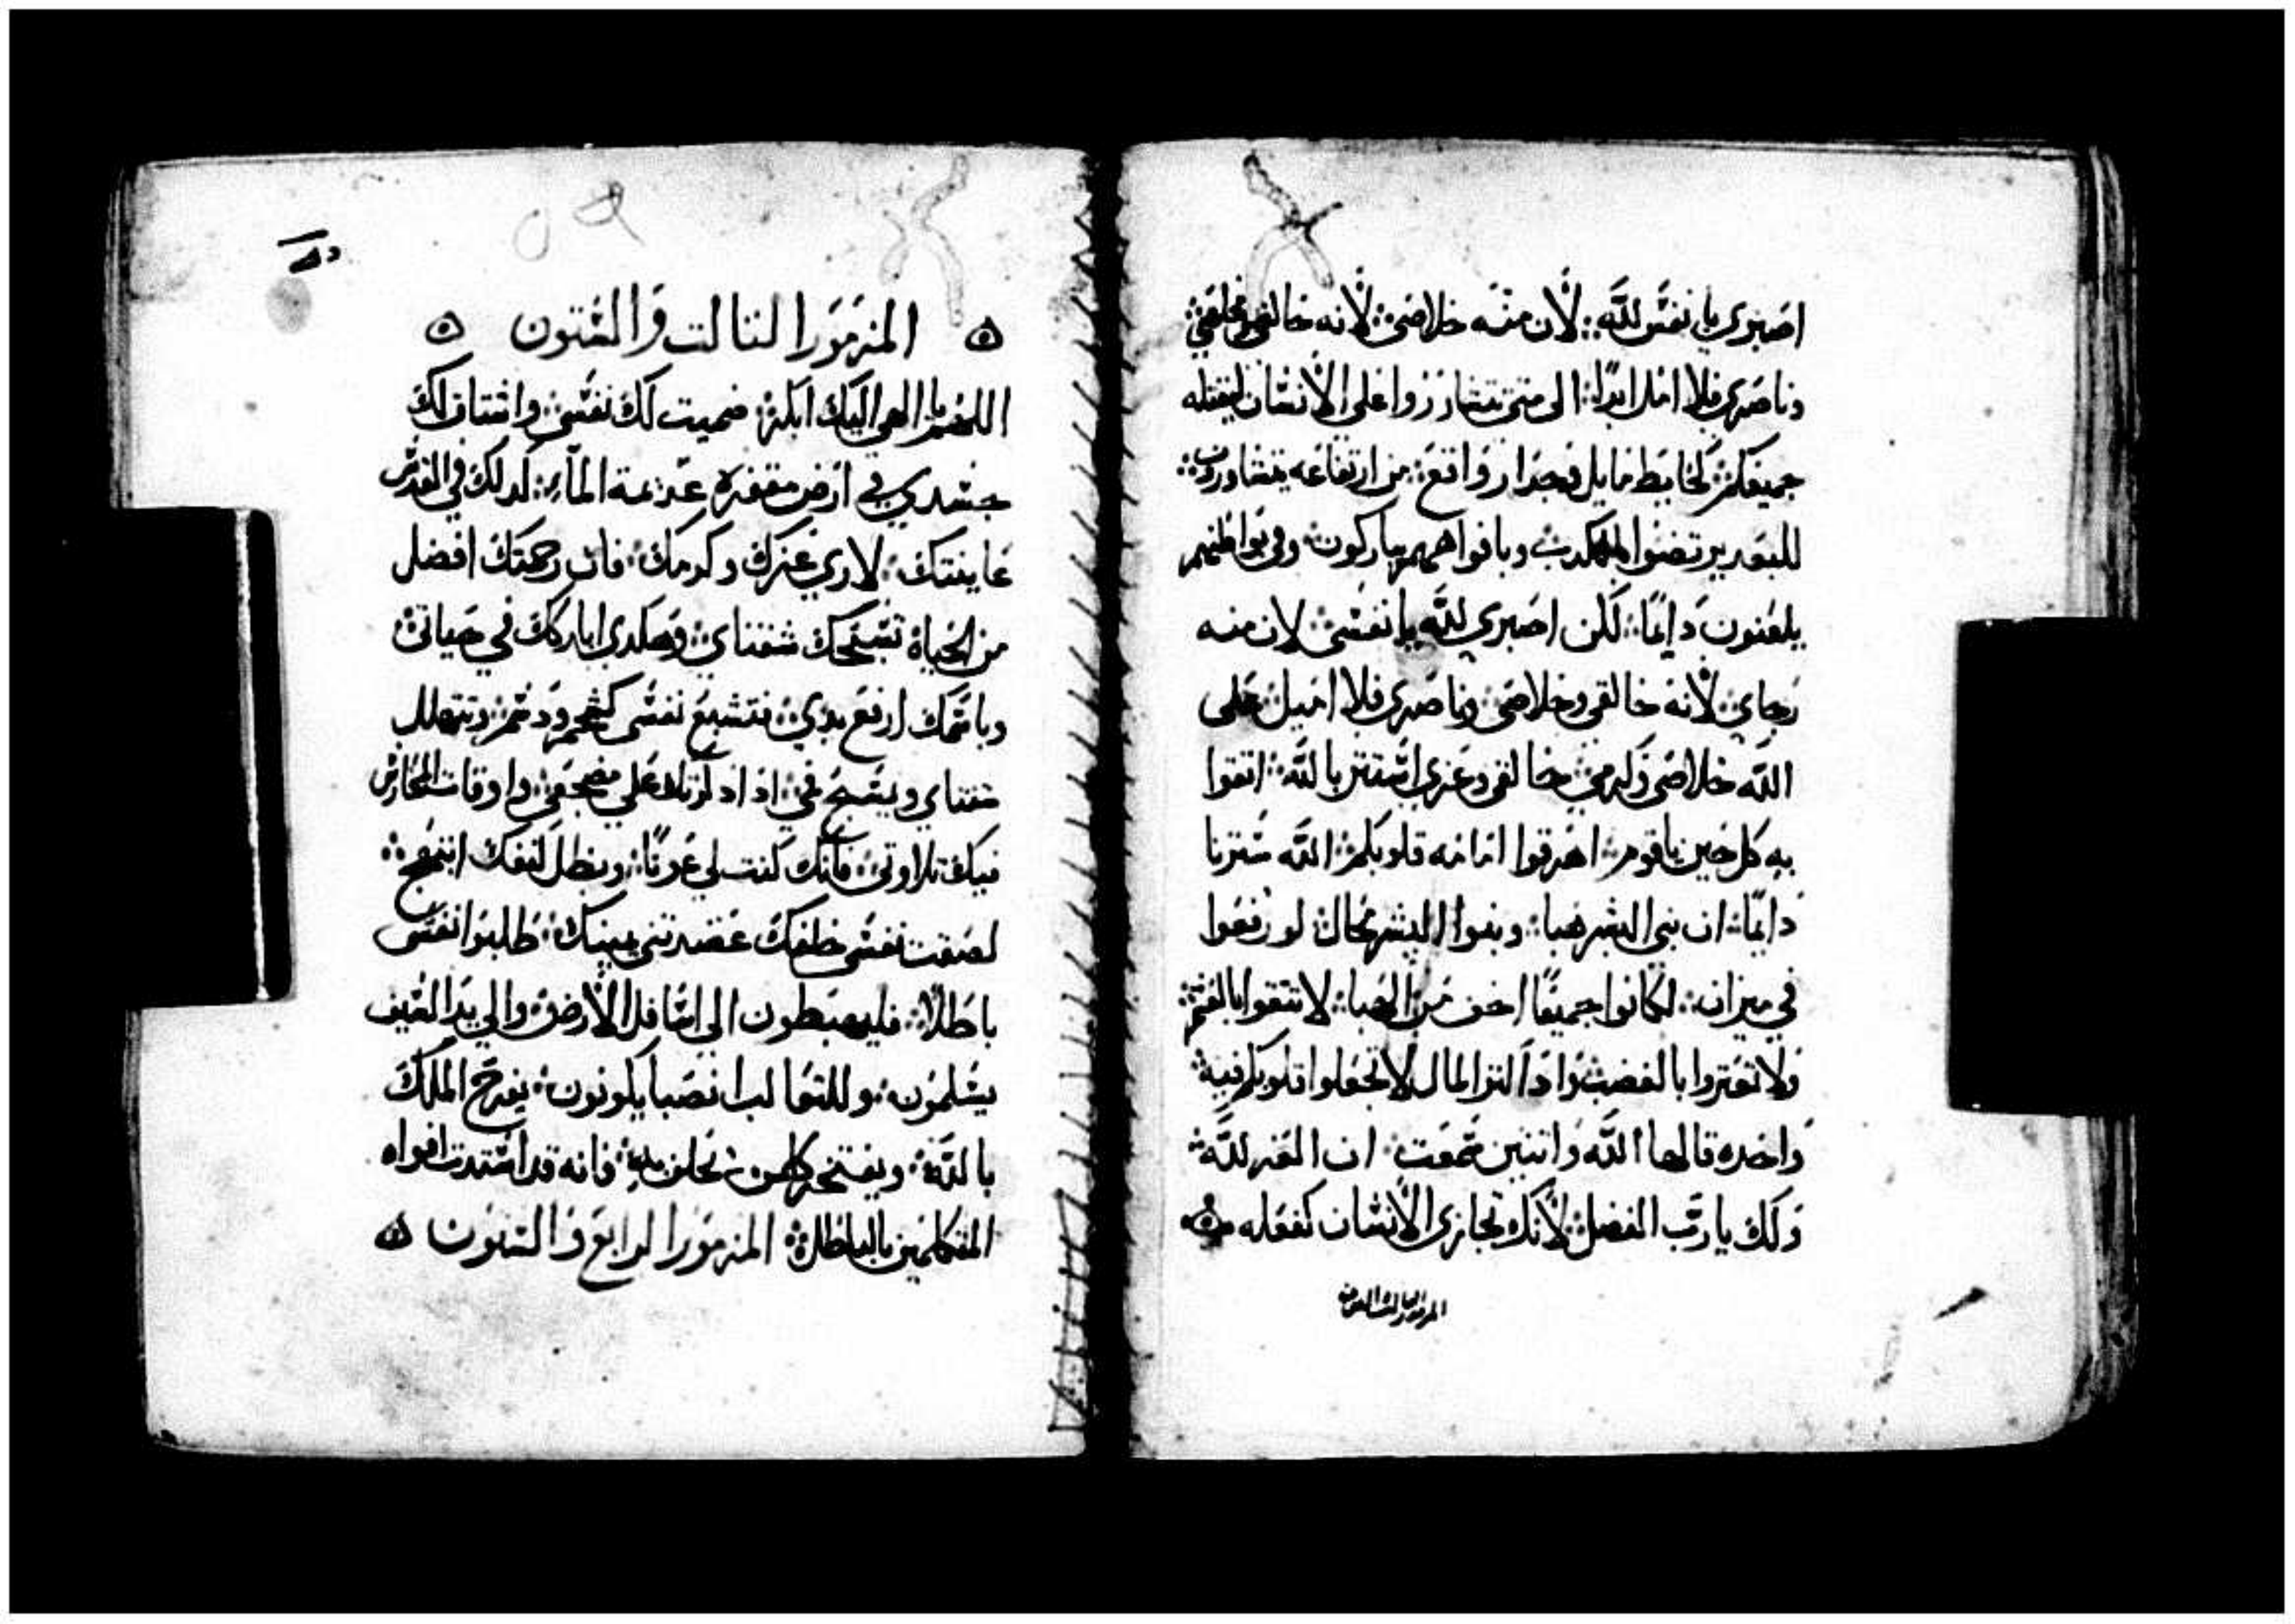 اصبري يا نفس لله ∴ لان منه خلاصي ∴ لانه خالقي ومخلصي ∴
وناصري فلا امل ابدًا ∴ الى متى تتشازروا على الانسان ليقتله
جميعكم ∴ كحايط مايل وجدار واقع ∴ من ارتفاعه يتشاورون ∴
وبافواههم يباركون ∴ وفي بواطنهم
يلعنون دايمًا ∴ لكن اصبري لله يا نفسي ∴ لان منه
رجاي ∴ لانه خالقي وخلاصي ∴ وناصري فلا اميل ∴ على
الله خلاصي وكرمي ∴ خالقي وعزي استتر بالله ∴ اتقوا
به كل حين يا قوم ∴ اهرقوا امامه قلوبكم ∴ الله سترنا
دايمًا ∴ ان بني البشر هبا ∴ وبنوا البشر محال ∴ لو رفعوا
في ميزان ∴ لكانوا جميعًا اخف من الهبا ∴ لا تتقوا بالغشم ∴
ولا تغتروا بالغصب ∴ واذا كثر المال لا تجعلوا قلوبكم فيه ∴
واحده قالها الله واتنين سمعت ∴ ان العز لله ∴
ولك يا رب الفضل ∴ لانك تجازي الانسان كفعله
المزمور التالت والستون
المزمور التالت والستون
اللهم يا الهي اليك ابكر ∴ ضميت لك نفسي ∴ واشتاق لك
جسدي في ارض مقفره عديمة الماء ∴ كدلك في القدس
عاينتك ∴ لاري عزك وكرمك ∴ فان رحمتك افضل
من الحياة تسبحك شفتاي ∴ وهكدي اباركك في حياتي ∴
وباسمك ارفع يدي ∴ فتشبع نفسي كشحم ودسم ∴ وتتهلل
شفتاي ويسبح في ∴ اذا دكرتك على مضجعي ∴ واوقات المحارس
فيك تلاوتي ∴ فانك كنت لي عونًا ∴ وبظل كنفك ابتهج ∴
لصقت نفسي خلفك عضدتني يمينك ∴ طلبوا نفسي
باطلًا ∴ فليهبطون الى اسافل الارض ∴ والى يد السيف
يسلمون ∴ وللتعالب انصبا يكونون ∴ يفرح الملك
بالله ∴ ويفتخر كلمن يحلف به ∴ فانه قد استدت افواه
المتكلمين بالباطل ∴ المزمور الرابع والستون